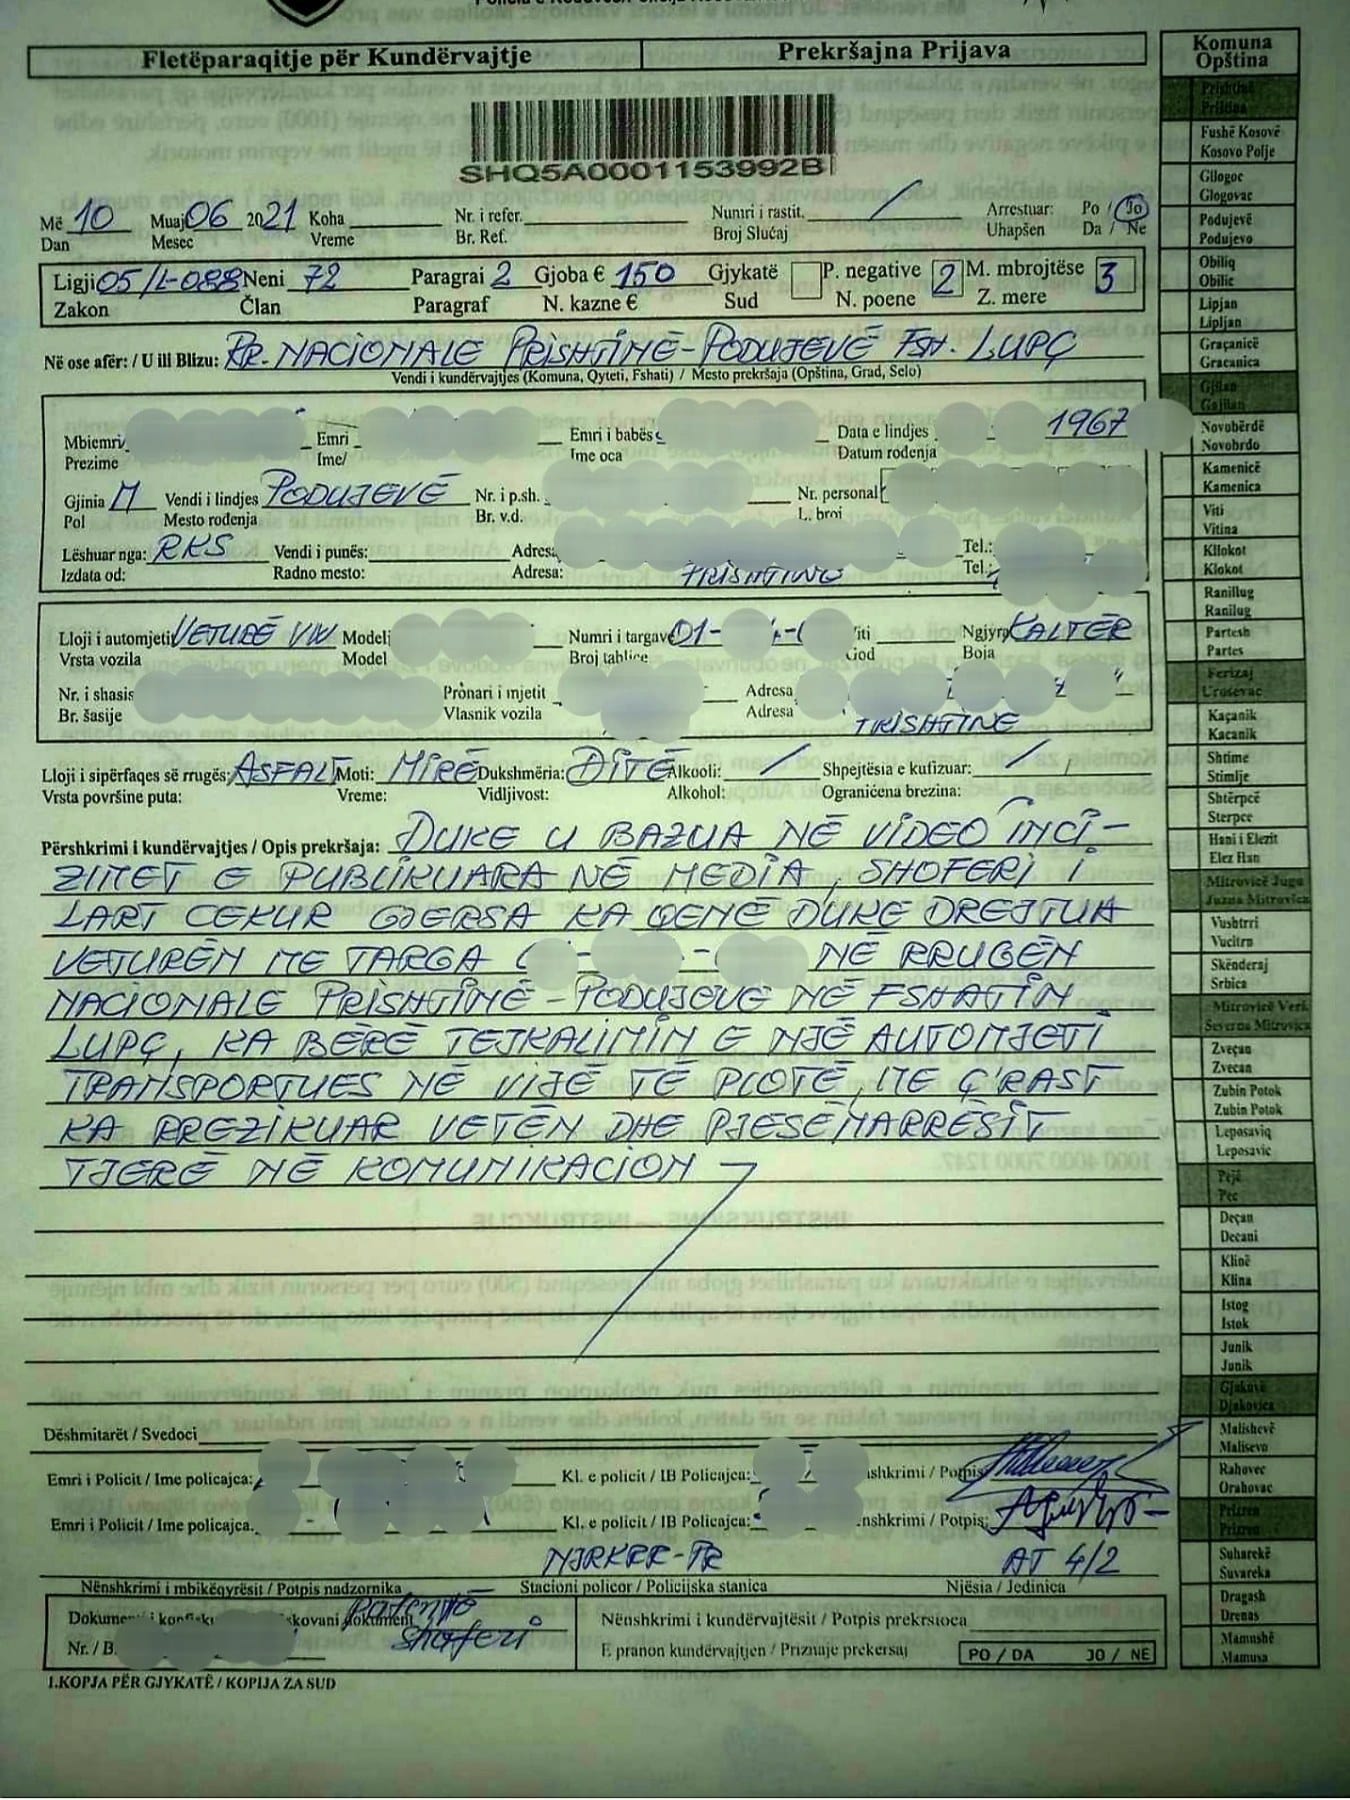 Fletëparaqitje për Kundërvajtje Prekršajna Prijava
SHQ5A0001153992B
Më 10 Muaj 06 2021 Koha Nr. i refer. Numri i rastit. / Arrestuar: Po / Jo
Dan Mesec Vreme Br. Ref. Broj Slučaj Uhapšen Da / Ne
Ligji 05/L-088 Neni 72 Paragrai 2 Gjoba € 150 Gjykatë P. negative 2 M. mbrojtëse 3
Zakon Član Paragraf N. kazne € Sud N. poene Z. mere
Në ose afër: / U ili Blizu: RR. NACIONALE PRISHTINË-PODUJEVË FSH. LUPÇ
Vendi i kundërvajtjes (Komuna, Qyteti, Fshati) / Mesto prekršaja (Opština, Grad, Selo)
Mbiemri Emri Emri i babës Data e lindjes 1967
Prezime Ime/ Ime oca Datum rođenja
Gjinia M Vendi i lindjes PODUJEVË Nr. i p.sh. Nr. personal
Pol Mesto rođenja Br. v.d. L. broj
Lëshuar nga: RKS Vendi i punës: Adresa Tel.:
Izdata od: Radno mesto: Adresa: PRISHTINË Tel.:
Lloji i automjetit VETURË VW Modeli Numri i targave 01- Viti Ngjyra KALTËR
Vrsta vozila Model Broj tablice God Boja
Nr. i shasis Prônari i mjetit Adresa
Br. šasije Vlasnik vozila Adresa PRISHTINË
Lloji i sipërfaqes së rrugës: ASFALT Moti: MIRË Dukshmëria: DITË Alkooli: / Shpejtësia e kufizuar: / /
Vrsta površine puta: Vreme: Vidljivost: Alkohol: Ograničena brezina:
Përshkrimi i kundërvajtjes / Opis prekršaja: DUKE U BAZUA NË VIDEO INCI-
ZIMET E PUBLIKUARA NË MEDIA, SHOFERI I
LART CEKUR GJERSA KA QENË DUKE DREJTUA
VETURËN ME TARGA - - NË RRUGËN
NACIONALE PRISHTINË-PODUJEVË NË FSHATIN
LUPÇ, KA BËRË TEJKALIMIN E NJË AUTOMJETI
TRANSPORTUES NË VIJË TË PLOTË, ME Ç'RAST
KA RREZIKUAR VETËN DHE PJESËMARRËSIT
TJERË NË KOMUNIKACION
Dëshmitarët / Svedoci
Emri i Policit / Ime policajca: Kl. e policit / IB Policajca: nshkrimi / Potpis
Emri i Policit / Ime policajca. Kl. e policit / IB Policajca: nënshkrimi / Potpis:
NJRKRR-PR AT 4/2
Nënshkrimi i mbikëqyrësit / Potpis nadzornika Stacioni policor / Policijska stanica Njësia / Jedinica
Dokumenti i konfisku skovani dokument Patentë Shoferi
Nr. / B.
Nënshkrimi i kundërvajtësit / Potpis prekrsioca
E pranon kundërvajtjen / Priznaje prekersaj PO / DA JO / NE
1.KOPJA PËR GJYKATË / KOPIJA ZA SUD
Komuna
Opština
Prishtinë
Priština
Fushë Kosovë
Kosovo Polje
Gllogoc
Glogovac
Podujevë
Podujevo
Obiliq
Obilic
Lipjan
Lipljan
Graçanicë
Gracanica
Gjilan
Gnjilan
Novobërdë
Novobrdo
Kamenicë
Kamenica
Viti
Vitina
Kllokot
Klokot
Ranillug
Ranilug
Partesh
Partes
Ferizaj
Urosevac
Kaçanik
Kacanik
Shtime
Stimlje
Shtërpcë
Sterpce
Hani i Elezit
Elez Han
Mitrovicë Jugu
Juzna Mitrovica
Vushtrri
Vucitrn
Skënderaj
Srbica
Mitrovicë Veri
Severna Mitrovica
Zveçan
Zvecan
Zubin Potok
Zubin Potok
Leposaviq
Leposavic
Pejë
Pec
Deçan
Decani
Klinë
Klina
Istog
Istok
Junik
Junik
Gjakovë
Djakovica
Malishevë
Malisevo
Rahovec
Orahovac
Prizren
Prizren
Suharekë
Suvareka
Dragash
Drenas
Mamushë
Mamusa